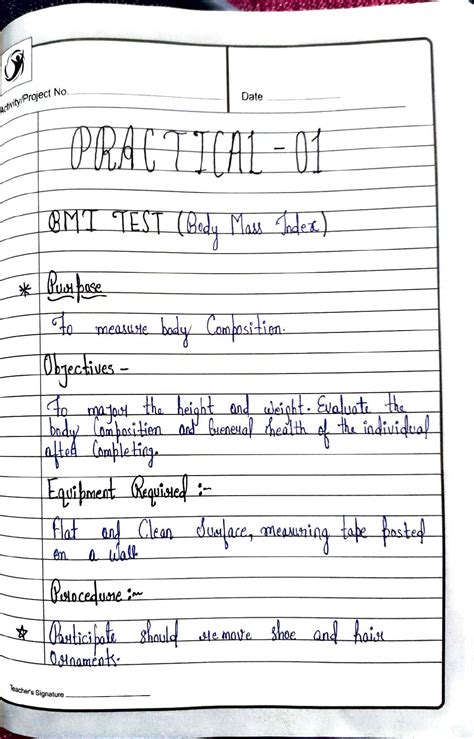 Activity/Project No.
Date
PRACTICAL-01
BMI TEST (Body Mass Index)
* Purpose
To measure body Composition.
Objectives -
To majour the height and weight. Evaluate the
body Composition and General health of the individual
after Completing.
Equipment Required :-
Flat and Clean Surface, measuring tape posted
on a wall.
Procedure :-
☆ Participate should remove shoe and hair
Ornaments.
Teacher's Signature